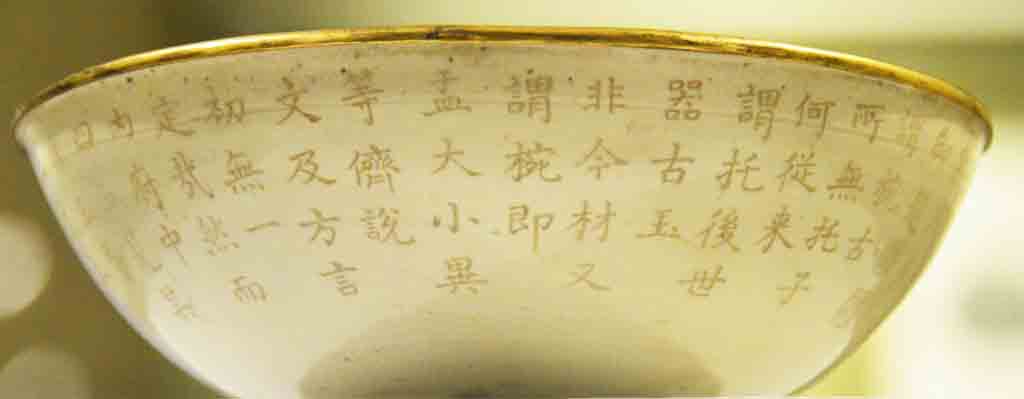 謂椀古
所無托子
何從来
謂托後世
器古玉
非今材又
謂椀即
盂大小異
等儕說
文及方言
初無一
定哉然而
内府中